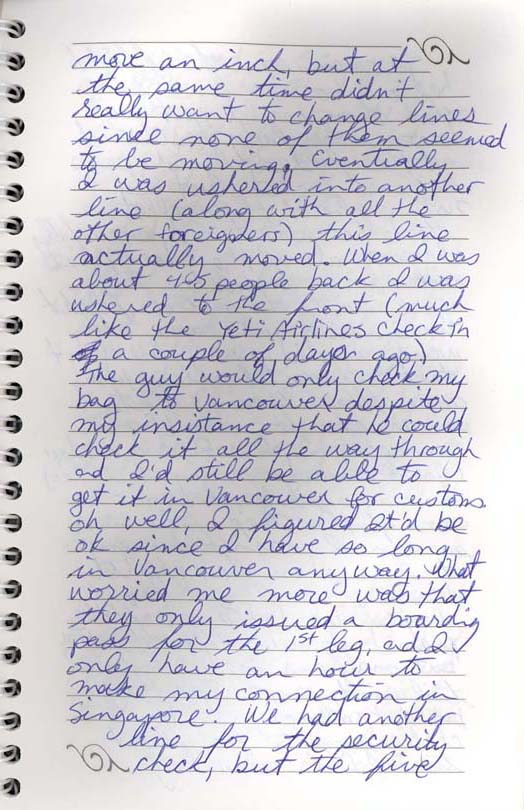 move an inch, but at
the same time didn't
really want to change lines
since none of them seemed
to be moving. Eventially
I was ushered into another
line (along with all the
other foreigners) this line
actually moved. When I was
about 4-5 people back I was
ushered to the front (much
like the Yeti Airlines check in
a couple of days ago)
The guy would only check my
bag to Vancouver despite
my insistance that he could
check it all the way through
and I'd still be able to
get it in Vancouver for customs.
oh well, I figured It'd be
ok since I have so long
in Vancouver anyway. What
worried me more was that
they only issued a boarding
pass for the 1st leg, ad I
only have an hour to
make my connection in
Singapore. We had another
line for the security
check, but the five